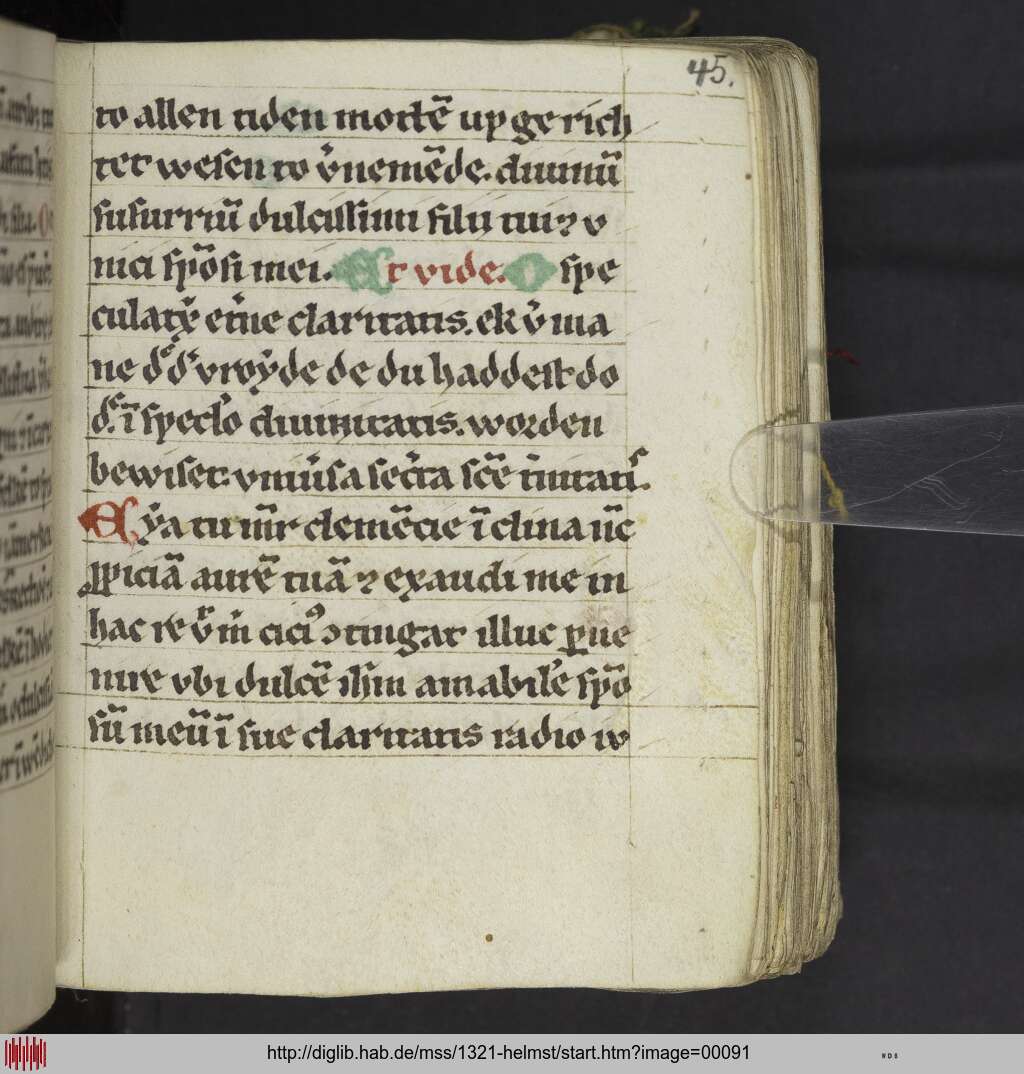 45.
to allen tiden mochtē up gerich
tet wesen to v̄nemēde. diuinū
susurriū dulcissimi filii tui ⁊ v
nici spōsi mei. Et vide. O spe
culatrix et̄ne claritatis. ek v̄ma
ne dͤ dͬ vroẏde de du haddest do
dͤ. ī speclo diuinitatis. worden
bewiset. vniūsa sec̄ta scē t̄nitatis.
Eẏa tu mr̄ clemēcie īclina nūc
ꝓpiciā aurē tuā ⁊ exaudi me in
hac re vt m̄ ciciꝰ ↄtingat illuc ꝑue
nire vbi dulcē illūm amabilē spō
sū meū ī sue claritatis radio in
http://diglib.hab.de/mss/1321-helmst/start.htm?image=00091
WDB